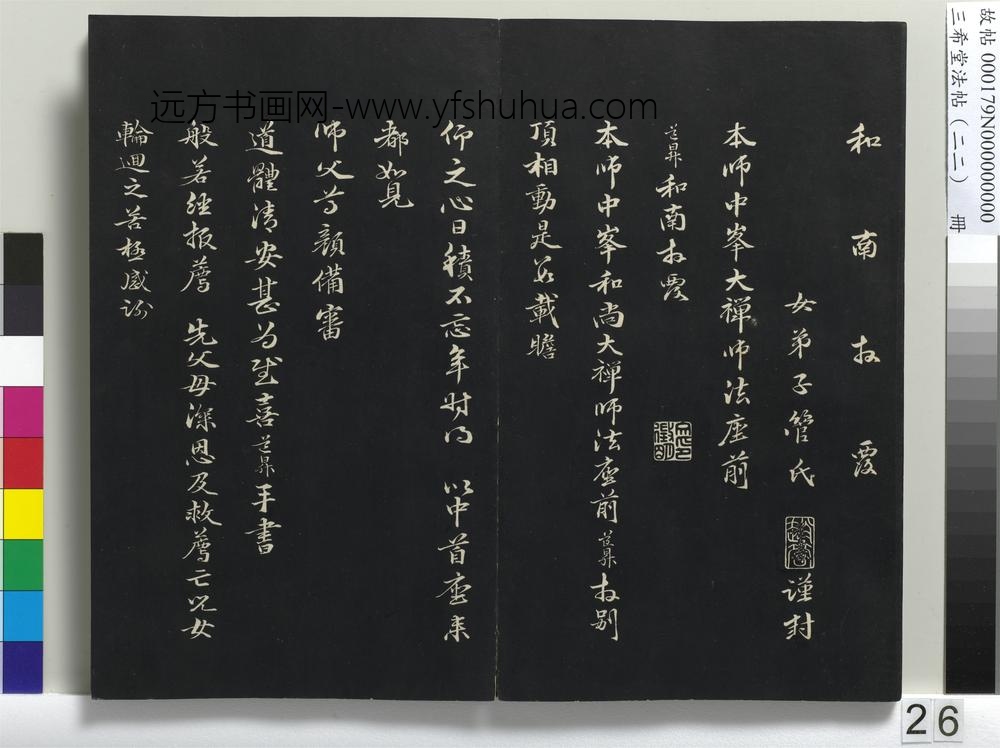 和南拜覆
女弟子管氏 謹封
本師中峯大禪師法座前
道昇和南拜覆
本師中峯和尚大禪師法座前道昇拜別
頂相動是數載瞻
仰之心日積不忘年時得 以中首座來
都如見
師父尊顏備審
道體清安甚為慰喜道昇手書
般若經報薦 先父母深恩及救薦亡兒女
輪迴之苦極感謝
远方书画网-www.yfshuhua.com
故帖000179N000000000
三希堂法帖（二二） 冊
26